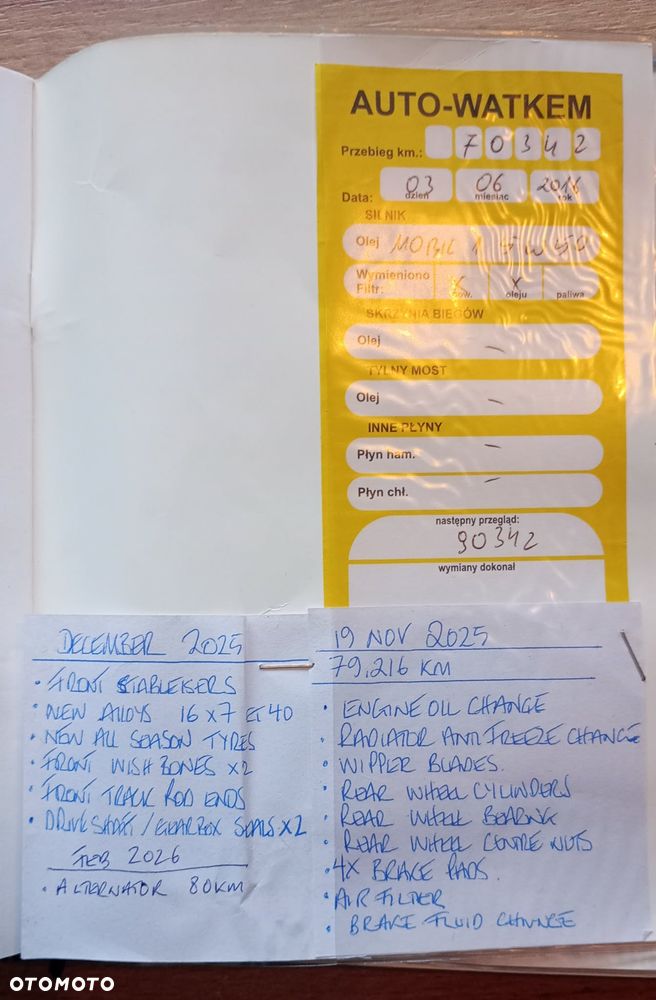 AUTO-WATKEM
Przebieg km.: 70342
Data: 03 06 2016
dzień miesiąc rok
SILNIK
Olej MOBIL 1 5W50
Wymieniono
Filtr: X X
pow. oleju paliwa
SKRZYNIA BIEGÓW
Olej —
TYLNY MOST
Olej —
INNE PŁYNY
Płyn ham. —
Płyn chł. —
następny przegląd:
90342
wymiany dokonał
DECEMBER 2025
• FRONT STABLEISERS
• NEW ALLOYS 16x7 ET 40
• NEW ALL SEASON TYRES
• FRONT WISHBONES x2
• FRONT TRACK ROD ENDS
• DRIVE SHAFT / GEARBOX SEALS x2
FEB 2026
• ALTERNATOR 80KM
19 NOV 2025
79,216 KM
• ENGINE OIL CHANGE
• RADIATOR ANTIFREEZE CHANGE
• WIPPER BLADES.
• REAR WHEEL CYLINDERS
• REAR WHEEL BEARING
• REAR WHEEL CENTRE NUTS
• 4X BRAKE PADS.
• AIR FILTER
• BRAKE FLUID CHANGE
OTOMOTO